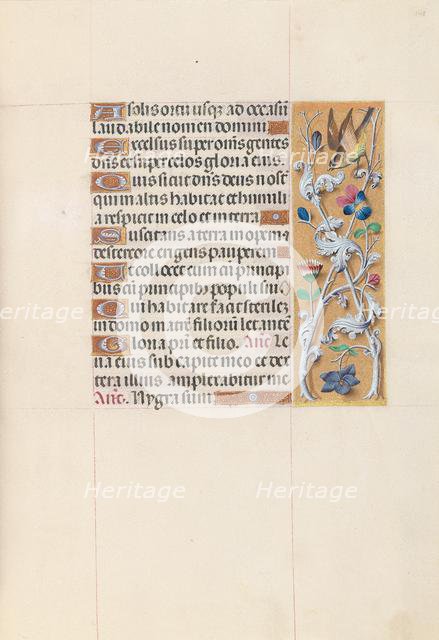 A solis ortu usq; ad occasū
laudabile nomen domini
Excelsus super om̄s gentes
dn̄s et super celos gloria eius
Quis sicut dn̄s deus nost
qui in altis habitat et humilia
respicit in celo et in terra
Suscitans a terra inopem
de stercore erigens pauperem
Ut collocet eum cū principi
bus cū principibus populi sui
Qui habitare facit sterilē
in domo matrē filiorū letantē
Gloria pr̄i et filio. An̄e. Le
ua eius sub capite meo et dex
tera illius amplexabitur me
An̄e. Nygra sum
Heritage
Heritage
Heritage
Heritage
Heritage
Heritage